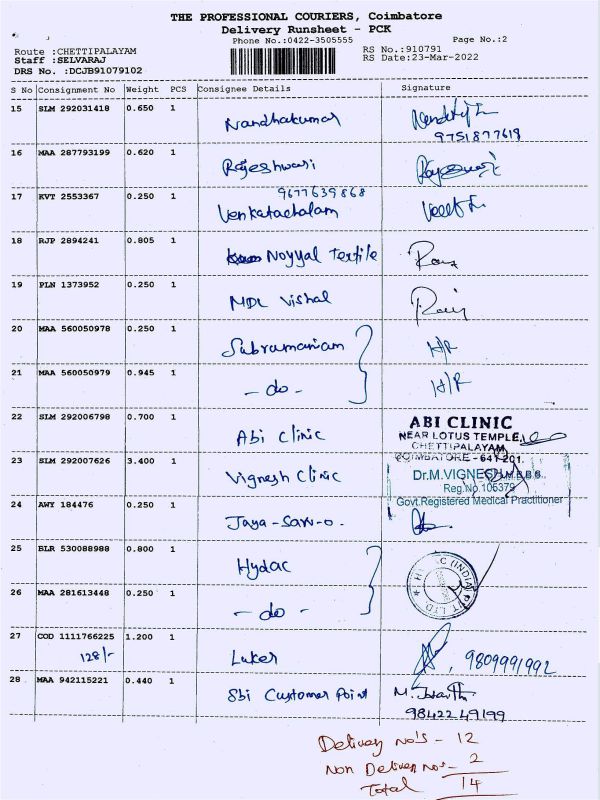 THE PROFESSIONAL COURIERS, Coimbatore
Delivery Runsheet - PCK
Phone No.:0422-3505555 Page No.:2
Route :CHETTIPALAYAM RS No.:910791
Staff :SELVARAJ RS Date:23-Mar-2022
DRS No. :DCJB91079102
S No Consignment No Weight PCS Consignee Details Signature
15 SLM 292031418 0.650 1 Nandhakumar
9751877619
16 MAA 287793199 0.620 1 Rajeshwari
9677639868
17 KVT 2553367 0.250 1 Venkatachalam
18 RJP 2894241 0.805 1 Noyyal Textile
19 PLN 1373952 0.250 1 MDL Vishal
20 MAA 560050978 0.250 1 Subramaniam H/R
21 MAA 560050979 0.945 1 - do - H/R
22 SLM 292006798 0.700 1 Abi Clinic
ABI CLINIC
NEAR LOTUS TEMPLE,
CHETTIPALAYAM,
COIMBATORE - 641 201.
23 SLM 292007626 3.400 1 Vignesh Clinic
Dr.M.VIGNESH,M.B.B.S.,
Reg.No.105379
Govt.Registered Medical Practitioner
24 AWY 184476 0.250 1 Jaya-Sarv-o.
25 BLR 530088988 0.800 1 Hydac
26 MAA 281613448 0.250 1 - do -
27 COD 1111766225 1.200 1 Luker , 9809991992
128/-
28 MAA 942115221 0.440 1 Sbi Customer Point
9842249199
Delivery no's - 12
Non Delivery no's - 2
Total 14